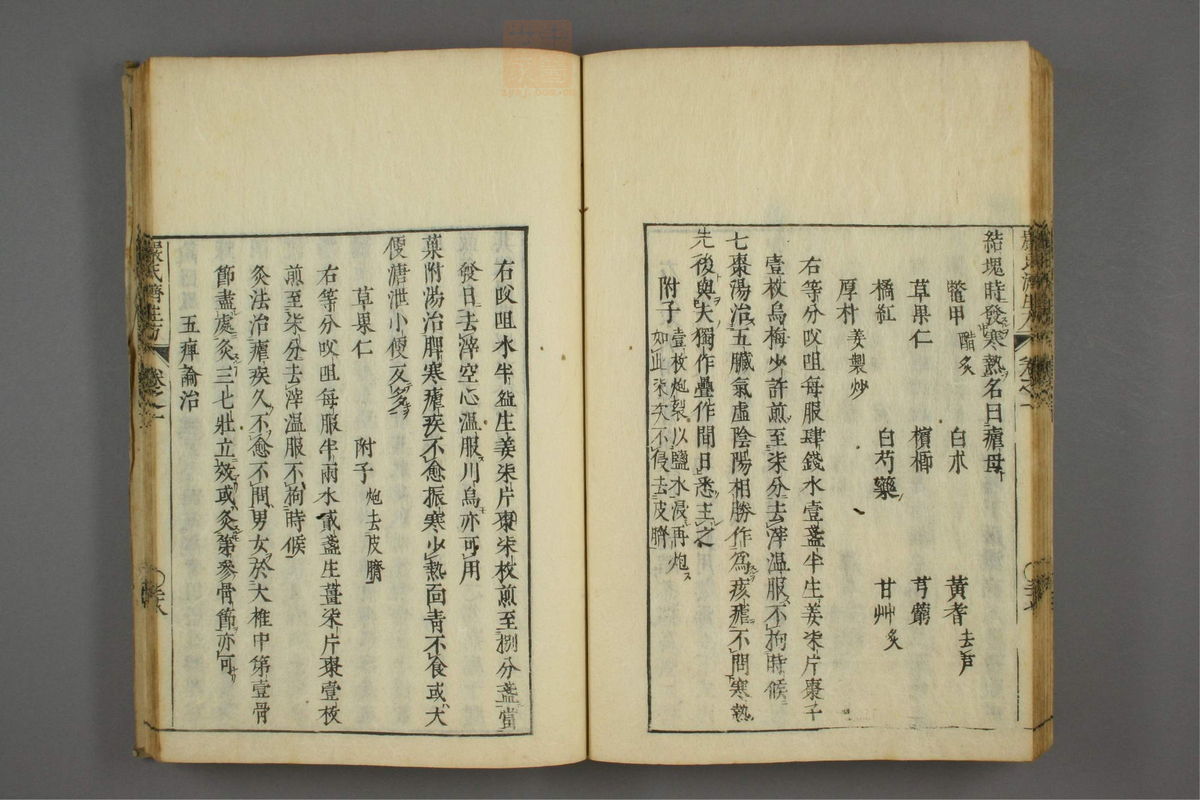 結塊時發寒熱名曰瘧母
鼈甲醋炙 白朮 黃耆去芦
草果仁 檳榔 芎藭
橘紅 白芍藥 甘艸炙
厚朴姜製炒
右等分㕮咀每服肆錢水壹盞半生姜柒片棗子
壹枚烏梅少許煎至柒分去滓温服不拘時候
七棗陽治五臟氣虛陰陽相勝作為痎瘧不問寒熱
先後與夫獨作疊作間日悉主之
附子壹枚炮裂以鹽水浸再炮
如此柒次不浸去皮臍
右㕮咀水半盌生姜柒片棗柒枚煎至捌分盞當
發日去滓空心温服川烏亦可用
菓附湯治脾寒瘧疾不愈振寒少熱面青不食或大
便溏泄小便反多
草果仁 附子炮去皮臍
右等分㕮咀每服半兩水貳盞生薑柒片棗壹枚
煎至柒分去滓温服不拘時候
灸法治瘧疾久不愈不問男女於大椎中第壹骨
節盡處灸三七壯立效或灸第參骨節亦可
五痺論治
嚴氏濟生方 卷之一